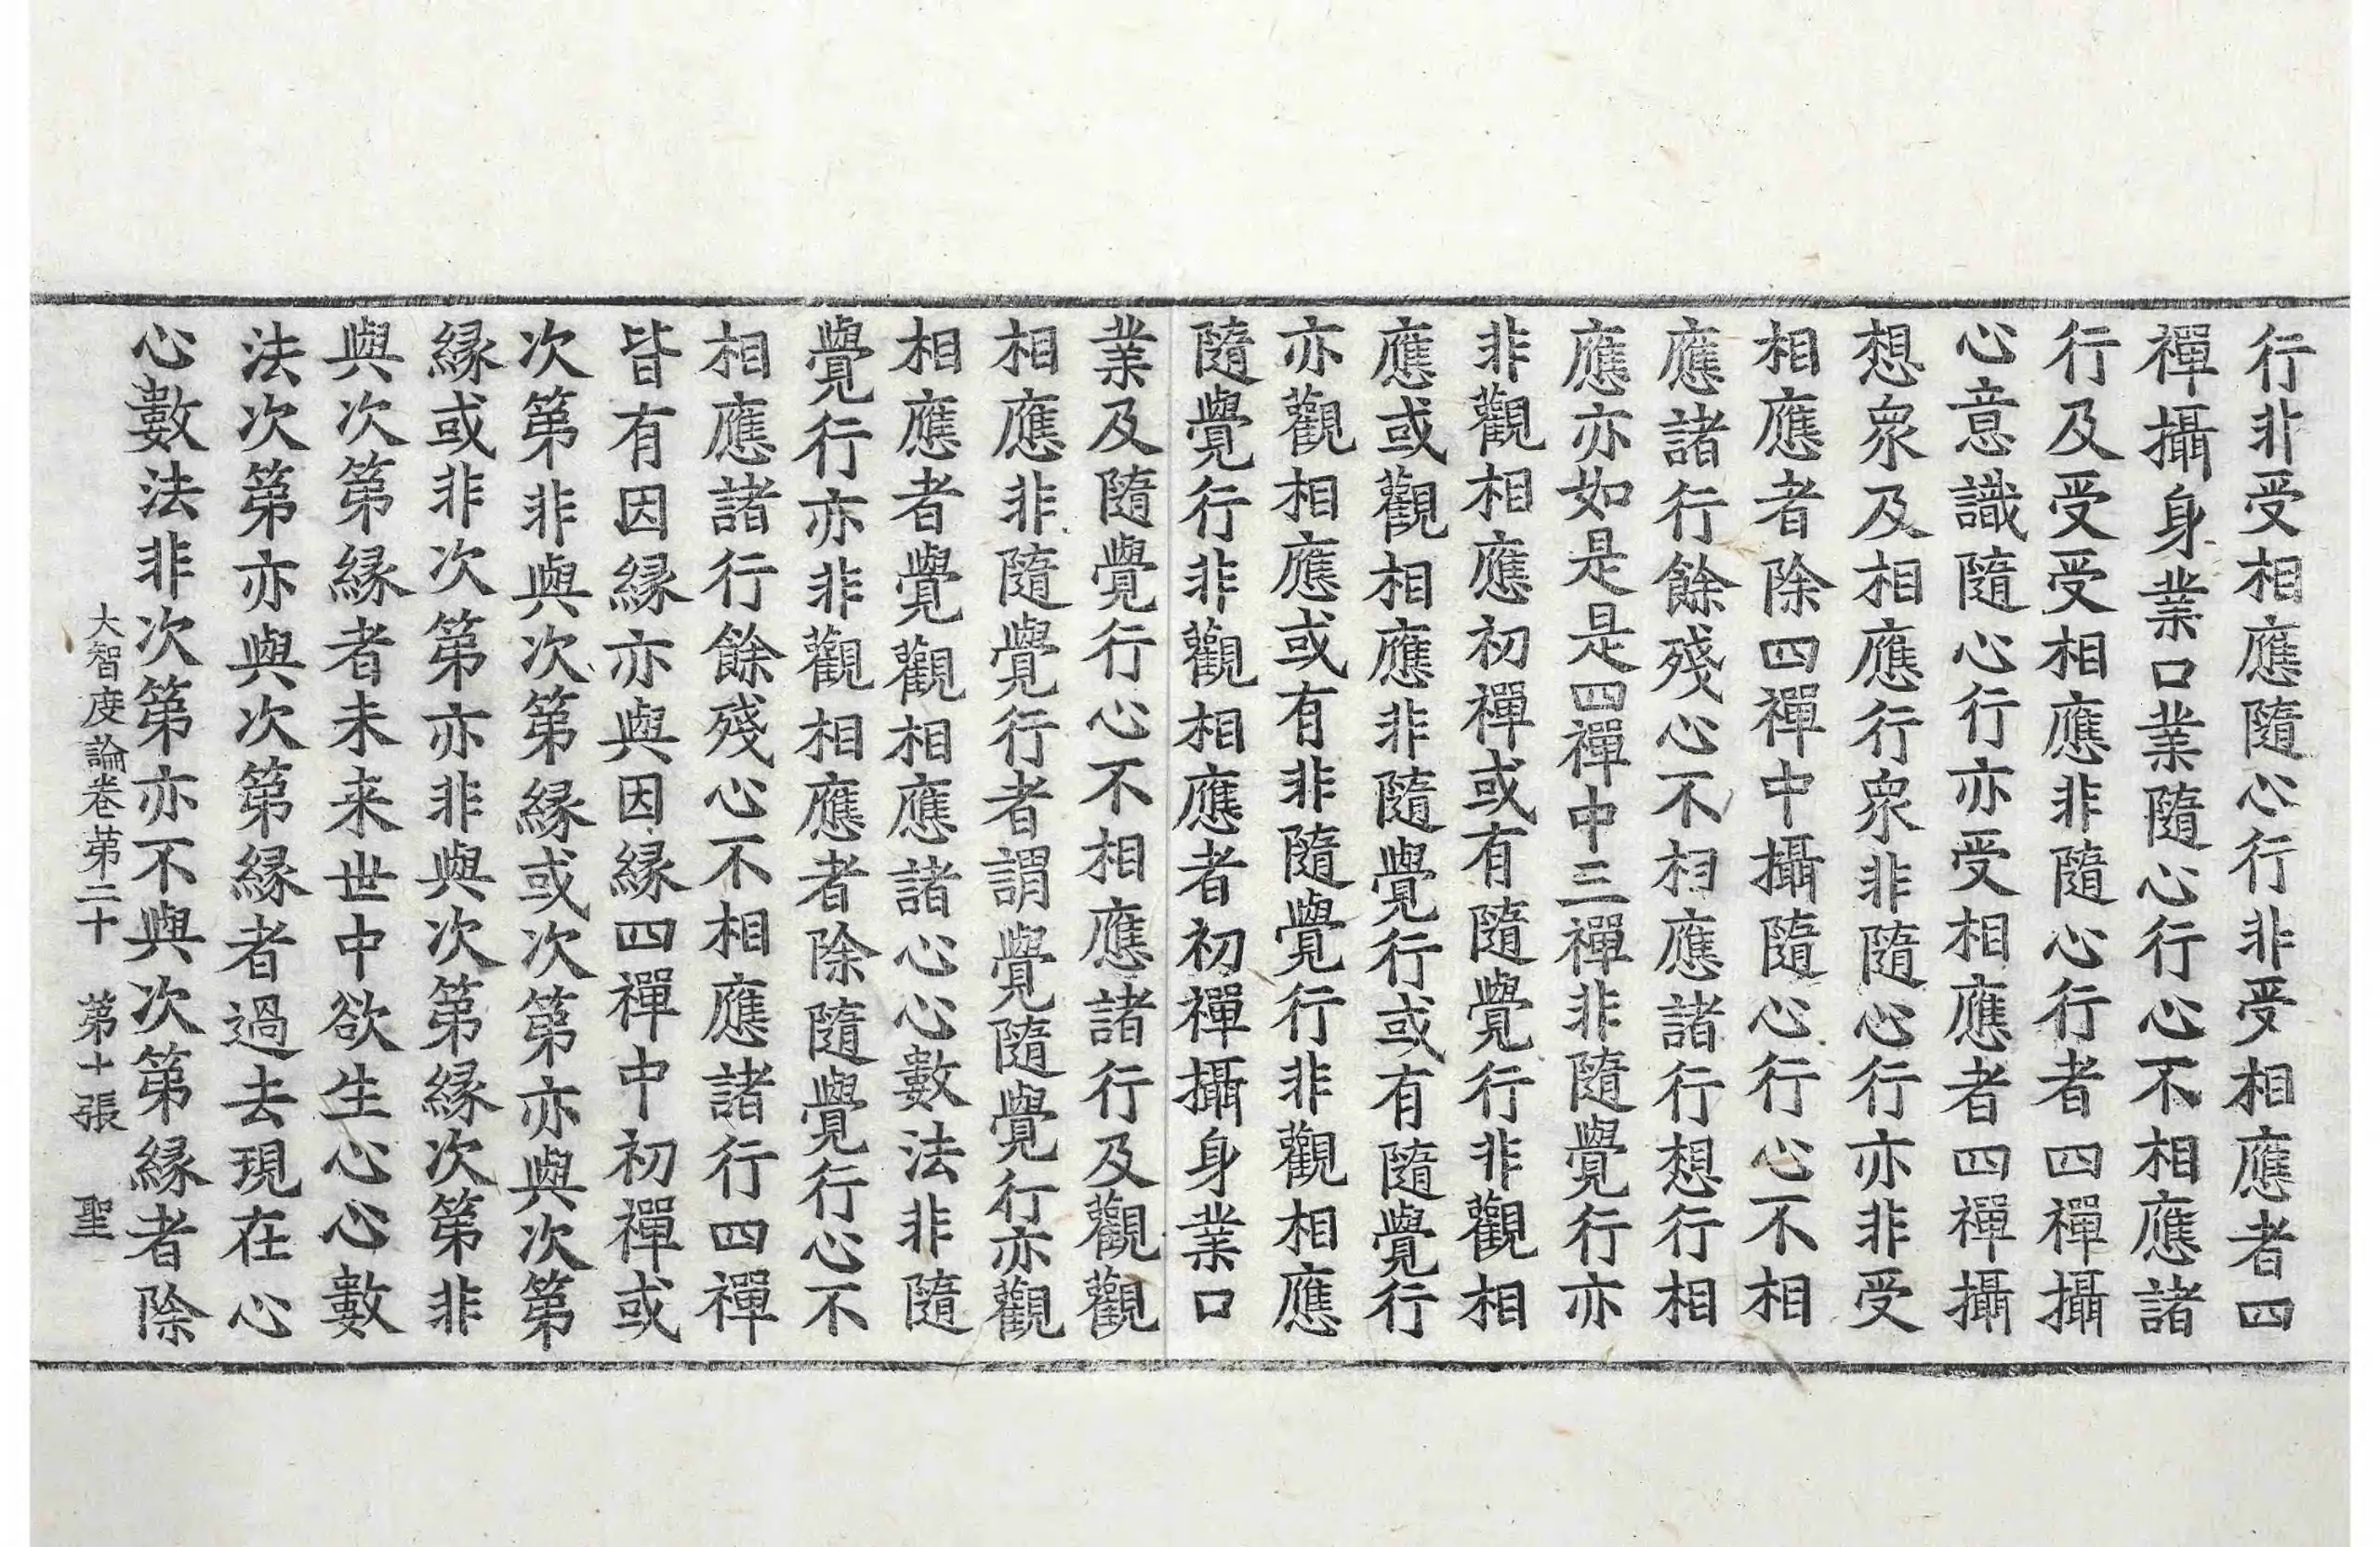 行非受相應隨心行非受相應者四
禪攝身業口業隨心行心不相應諸
行及受受相應非隨心行者四禪攝
心意識隨心行亦受相應者四禪攝
想衆及相應行衆非隨心行亦非受
相應者除四禪中攝隨心行心不相
應諸行餘殘心不相應諸行想行相
應亦如是是四禪中三禪非隨覺行亦
非觀相應初禪或有隨覺行非觀相
應或觀相應非隨覺行或有隨覺行
亦觀相應或有非隨覺行非觀相應
隨覺行非觀相應者初禪攝身業口
業及隨覺行心不相應諸行及觀觀
相應非隨覺行者謂覺隨覺行亦觀
相應者覺觀相應諸心心數法非隨
覺行亦非觀相應者除隨覺行心不
相應諸行餘殘心不相應諸行四禪
皆有因縁亦與因縁四禪中初禪或
次第非與次第縁或次第亦與次第
縁或非次第亦非與次第縁次第非
與次第縁者未来世中欲生心心數
法次第亦與次第縁者過去現在心
心數法非次第亦不與次第縁者除
大智度論卷第二十 第十張 聖